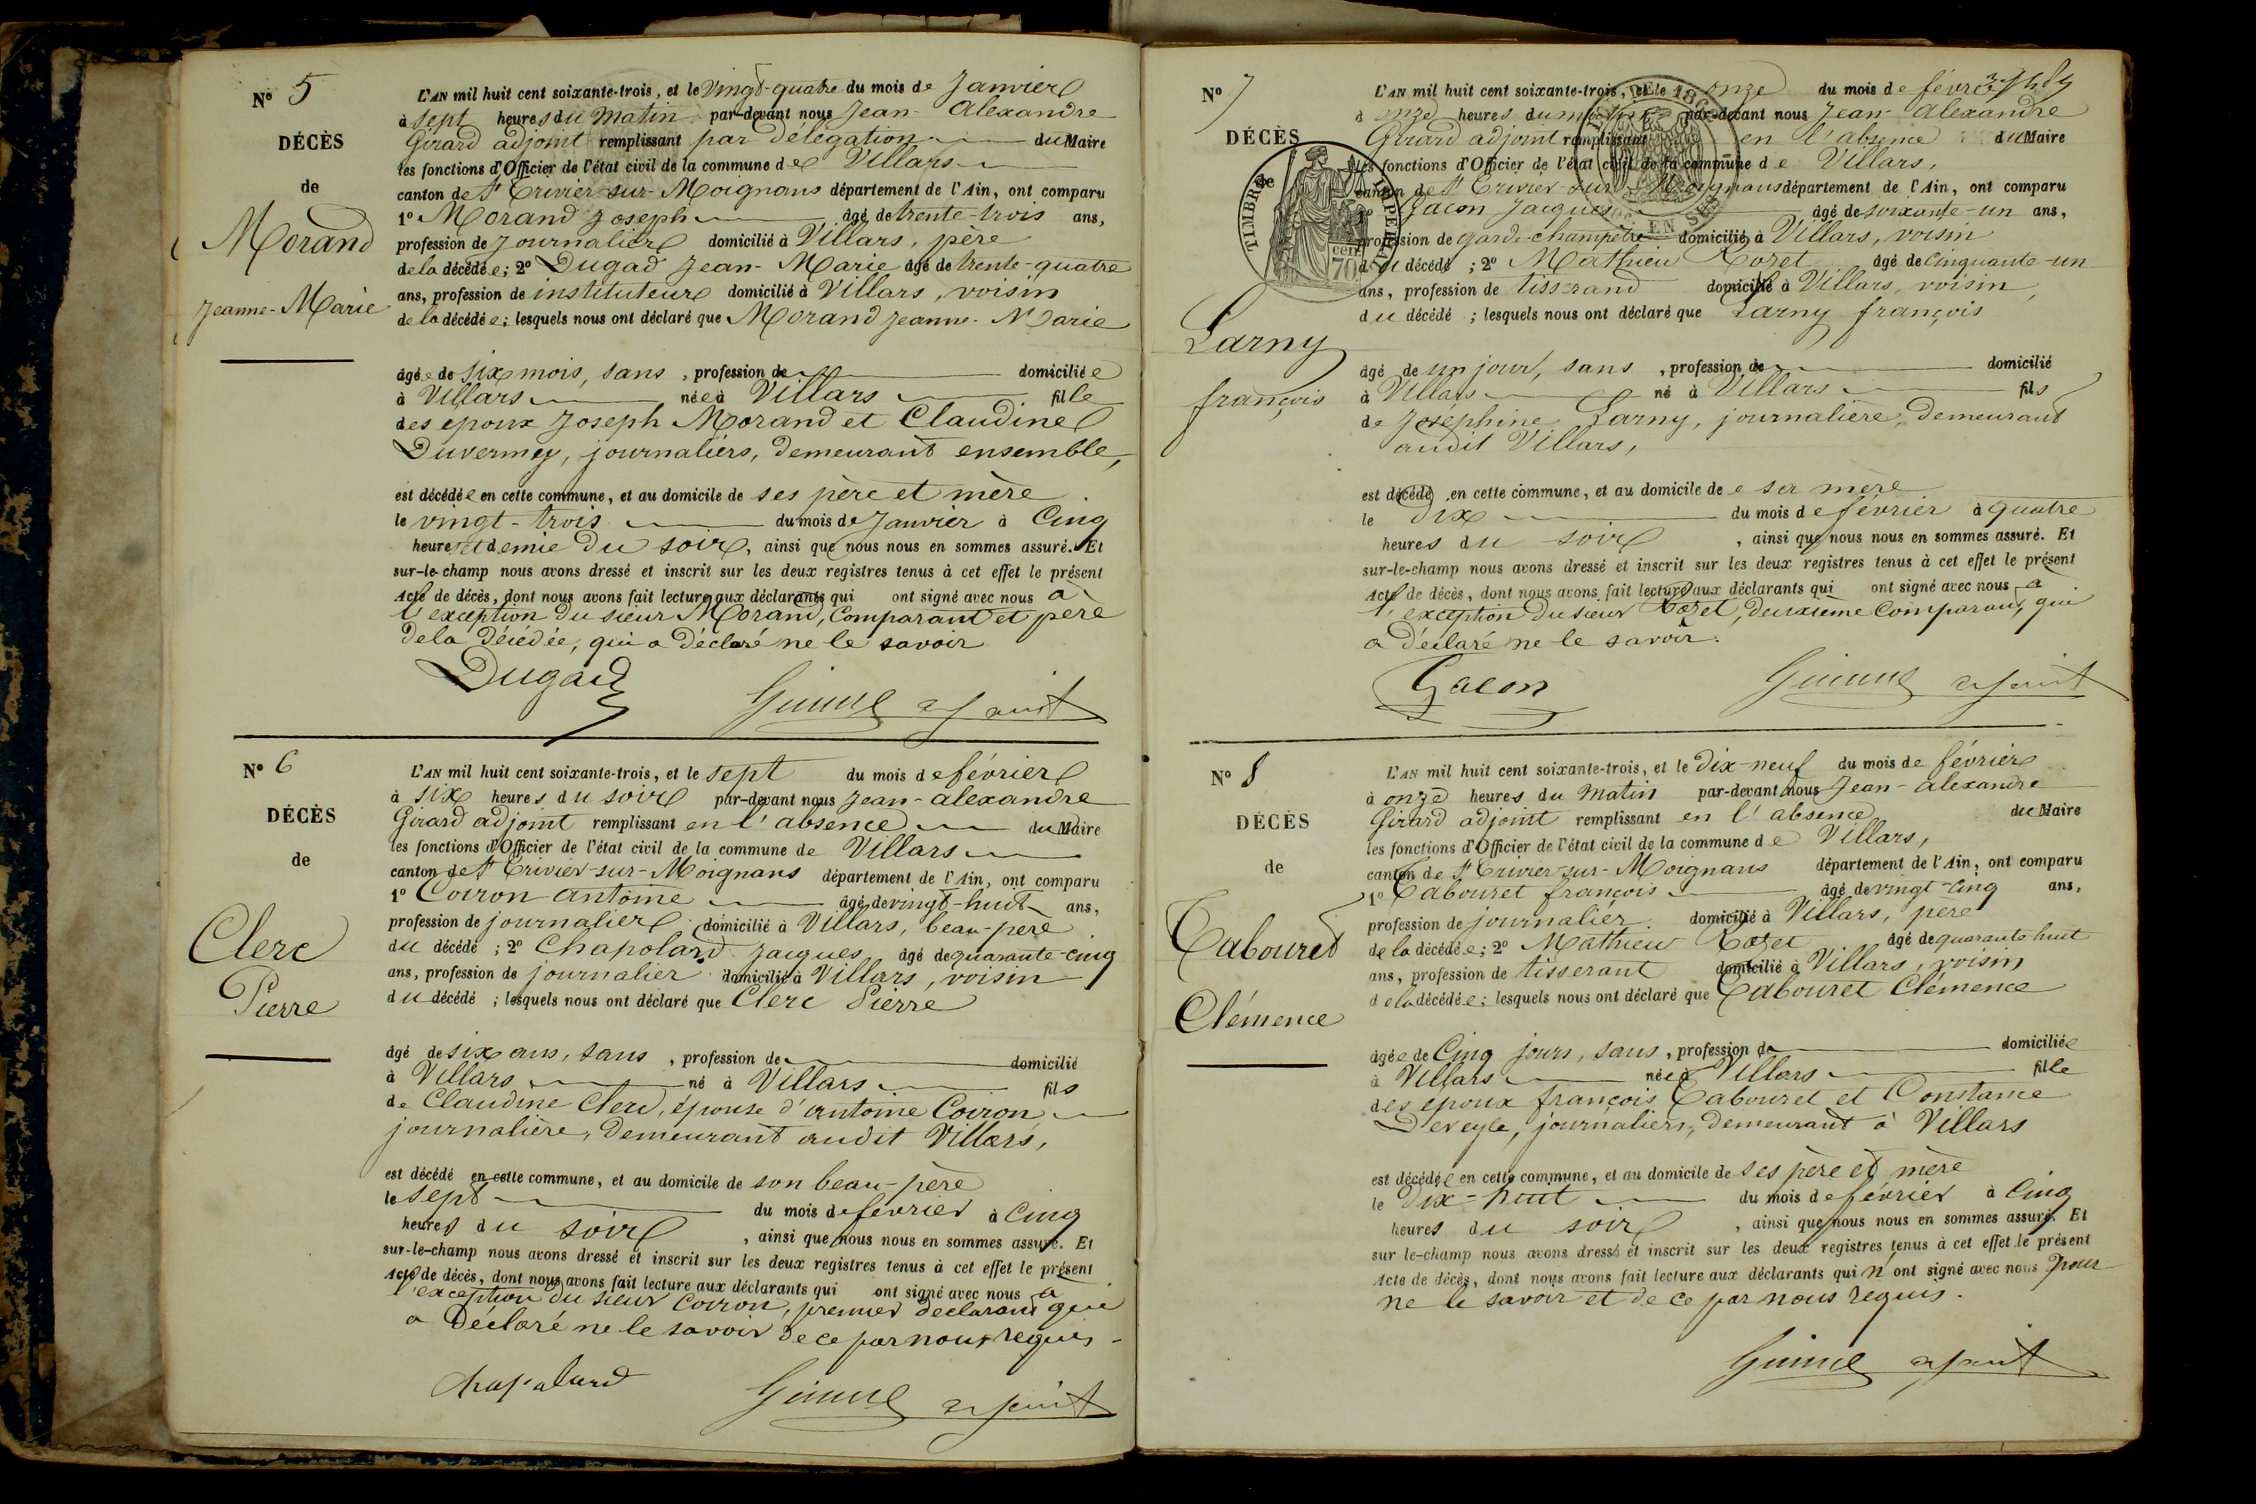 N° 5
DÉCÈS
de
Morand
Jeanne-Marie
L'AN mil huit cent soixante-trois, et le vingt-quatre du mois de Janvier
à sept heures du matin par-devant nous Jean-Alexandre
Girard adjoint remplissant par délégation du Maire
les fonctions d'Officier de l'état civil de la commune de Villars
canton de St Trivier-sur-Moignans département de l'Ain, ont comparu
1° Morand Joseph âgé de trente-trois ans,
profession de Journalier domicilié à Villars, père
de la décédée; 2° Dugad Jean-Marie âgé de trente-quatre
ans, profession de instituteur domicilié à Villars, voisin
de la décédée; lesquels nous ont déclaré que Morand Jeanne-Marie
âgée de six mois, sans, profession de domiciliée
à Villars née à Villars fille
des époux Joseph Morand et Claudine
Duvermey, journaliers, demeurant ensemble,
est décédée en cette commune, et au domicile de ses père et mère.
le vingt-trois du mois de Janvier à Cinq
heures et demie du soir, ainsi que nous nous en sommes assuré. Et
sur-le-champ nous avons dressé et inscrit sur les deux registres tenus à cet effet le présent
Acte de décès, dont nous avons fait lecture aux déclarants qui ont signé avec nous à
l'exception du sieur Morand, Comparant et père
de la décédée, qui a déclaré ne le savoir
Dugad
adjoint
N° 6
DÉCÈS
de
Clerc
Pierre
L'AN mil huit cent soixante-trois, et le sept du mois de février
à six heures du soir par-devant nous Jean-alexandre
Girard adjoint remplissant en l'absence du Maire
les fonctions d'Officier de l'état civil de la commune de Villars
canton de St Trivier-sur-Moignans département de l'Ain, ont comparu
1° Coiron antoine âgé de vingt-huit ans,
profession de journalier domicilié à Villars, beau-père
du décédé; 2° Chapolard Jacques âgé de quarante-cinq
ans, profession de journalier domicilié à Villars, voisin
du décédé; lesquels nous ont déclaré que Clerc Pierre
âgé de six ans, sans, profession de domicilié
à Villars né à Villars fils
de Claudine Clerc, épouse d'antoine Coiron
journalière, demeurant audit Villars,
est décédé en cette commune, et au domicile de son beau-père
le sept du mois de février à Cinq
heures du soir, ainsi que nous nous en sommes assuré. Et
sur-le-champ nous avons dressé et inscrit sur les deux registres tenus à cet effet le présent
Acte de décès, dont nous avons fait lecture aux déclarants qui ont signé avec nous à
l'exception du sieur Coiron, premier déclarant qui
a déclaré ne le savoir de ce par nous requis
chapalard
adjoint
N° 7
DÉCÈS
de
TIMBRE IMPERIAL
70 cen
Larny
françois
L'AN mil huit cent soixante-trois, et le onze du mois de février
à onze heures du matin par-devant nous Jean-Alexandre
Girard adjoint remplissant en l'absence du Maire
les fonctions d'Officier de l'état civil de la commune de Villars,
canton de St Trivier-sur-Moignans département de l'Ain, ont comparu
1° Gacon Jacques âgé de soixante-un ans,
profession de garde-champêtre domicilié à Villars, voisin
du décédé; 2° Mathieu Rozet âgé de cinquante-un
ans, profession de tisserand domicilié à Villars, voisin,
du décédé; lesquels nous ont déclaré que Larny françois
âgé de un jour, sans, profession de domicilié
à Villars né à Villars fils
de Joséphine Larny, journalière, demeurant
audit Villars,
est décédé en cette commune, et au domicile de sa mère
le dix du mois de février à quatre
heures du soir, ainsi que nous nous en sommes assuré. Et
sur-le-champ nous avons dressé et inscrit sur les deux registres tenus à cet effet le présent
Acte de décès, dont nous avons fait lecture aux déclarants qui ont signé avec nous à
l'exception du sieur Rozet, deuxième Comparant, qui
a déclaré ne le savoir.
Gacon
adjoint
N° 8
DÉCÈS
de
Tabouret
Clémence
L'AN mil huit cent soixante-trois, et le dix-neuf du mois de février
à onze heures du matin par-devant nous Jean-alexandre
Girard adjoint remplissant en l'absence du Maire
les fonctions d'Officier de l'état civil de la commune de Villars,
canton de St Trivier-sur-Moignans département de l'Ain, ont comparu
1° Tabouret françois âgé de vingt-cinq ans,
profession de journalier domicilié à Villars, père
de la décédée; 2° Mathieu Rozet âgé de quarante huit
ans, profession de tisserant domicilié à Villars, voisin
de la décédée; lesquels nous ont déclaré que Tabouret Clémence
âgée de Cinq jours, sans, profession de domiciliée
à Villars née à Villars fille
des époux françois Tabouret et Constance
Deveyle, journaliers, demeurant à Villars
est décédée en cette commune, et au domicile de ses père et mère
le dix-huit du mois de février à Cinq
heures du soir, ainsi que nous nous en sommes assuré. Et
sur le-champ nous avons dressé et inscrit sur les deux registres tenus à cet effet le présent
Acte de décès, dont nous avons fait lecture aux déclarants qui n'ont signé avec nous pour
ne le savoir et de ce par nous requis.
adjoint